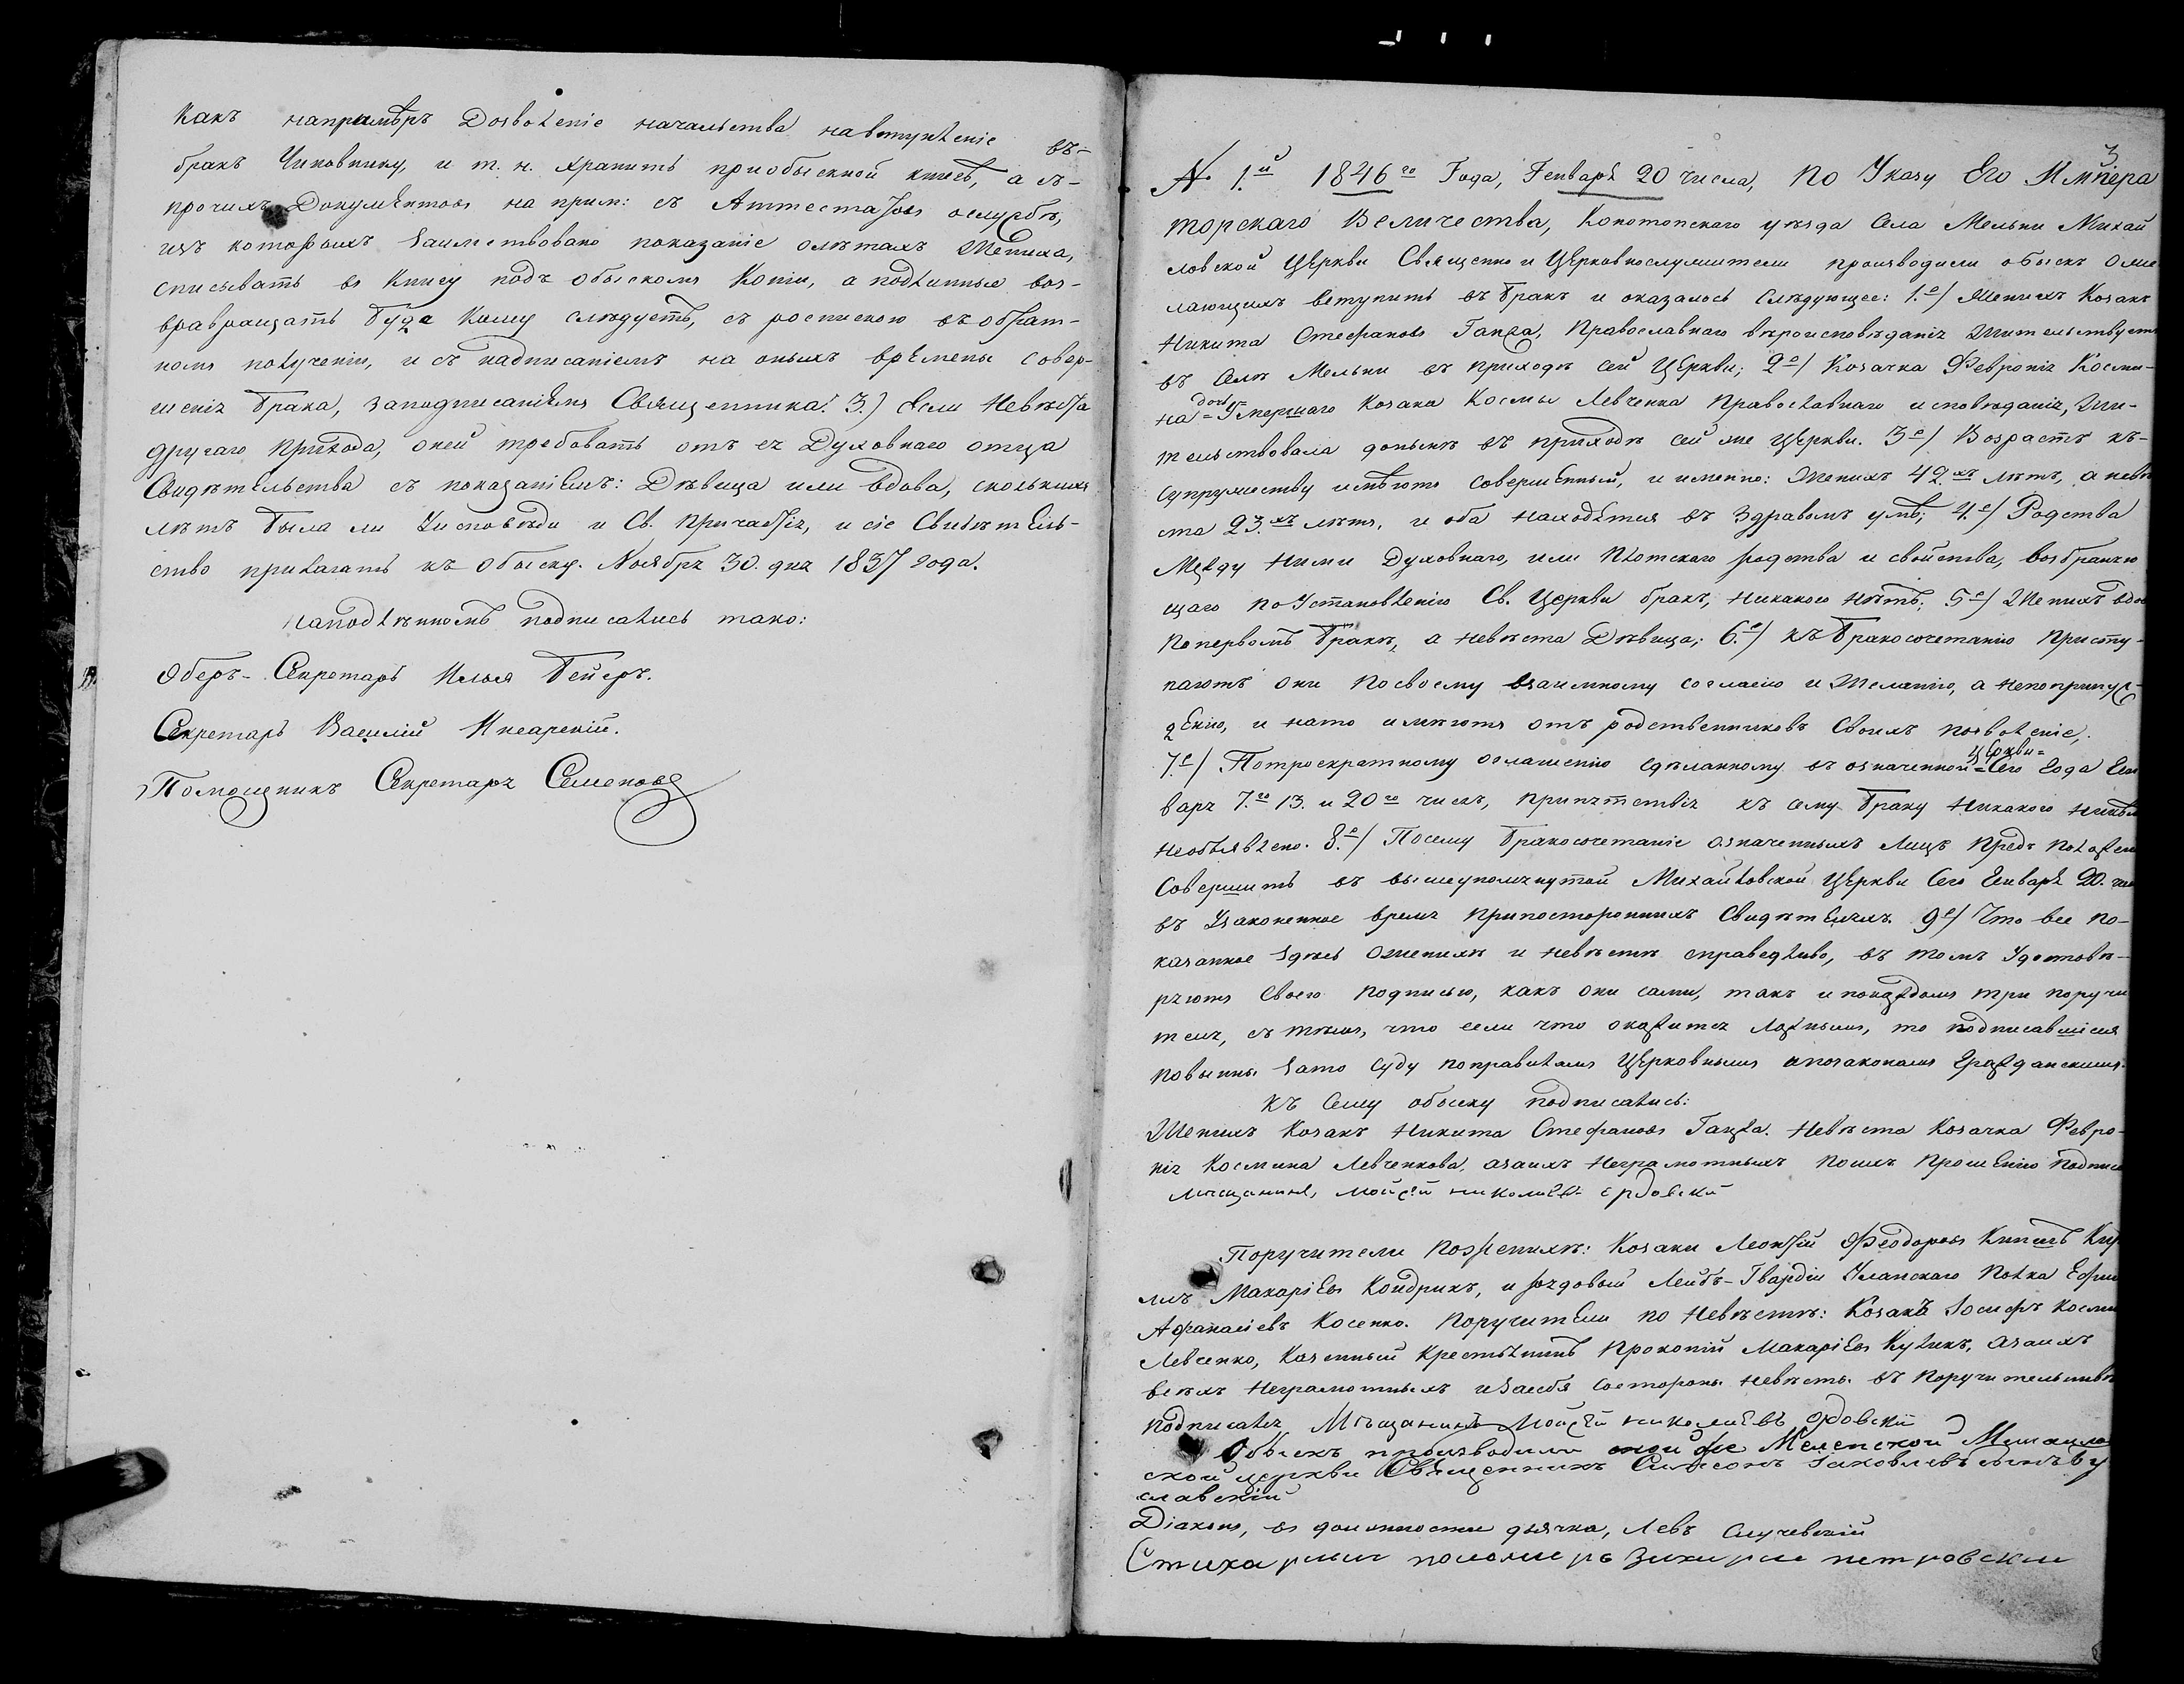 Какъ напримѣръ Дозволеніе начальства навступленіе въ-
бракъ Чиновнику, и т. н. хранить приобыскной книгѣ, а съ-
прочихъ Документовъ на прим: съ Аттестатовъ ослужбѣ,
изъ которыхъ заимствовано показаніе олѣтахъ Жениха,
списывать въ Книгу подъ обыскомъ Копіи, а подлинные воз-
вращать Куда Кому слѣдуетъ, съ роспискою въ обрат-
номъ полученіи, и съ надписаніемъ на оныхъ времени совер-
шенія брака, заподписаніемъ Священника. 3.) Если Невѣста
другаго прихода, оней требовать отъ ея Духовнаго отца
Свидѣтельства съ показаніемъ: Дѣвица или вдова, сколькихъ
лѣтъ была ли Уисповѣди и Св. Причастія, и сіе Свидѣтель-
ство прилагать къ обыску. Ноября 30. дня 1837 года.
наподлѣнномъ подписались тако:
Оберъ-Секретарь Илья Бейеръ.
Секретарь Василій Инсарскій.
Помощникъ Секретаря Семеновъ
3
№ 1.й 1846го Года, Генваря 20 числа, По Указу Его Импера
торскаго Величества, Конотопскаго уѣзда Села Мельни Михай
ловской Церкви Священно и Церковнослужители производили обыскъ оже
лающихъ вступить въ бракъ и оказалось Слѣдующее: 1.е) Женихъ Козакъ
Никита Стефановъ Ганжа, Православнаго вѣроисповѣданія Жительствуетъ
въ Селѣ Мельни въ приходѣ сей Церкви; 2е) Козачка Февронія Косми-
дочь
на = Умершаго Козака Космы Левченка Православнаго исповѣданія, Жи-
тельствовала донынѣ въ приходѣ сей же Церкви. 3е) Возрастъ къ-
супружеству имѣютъ Совершенный, и именно: Женихъ 42.хъ лѣтъ, а невѣ
ста 23.хъ лѣтъ, и оба находятся въ Здравомъ умѣ; 4.е) Родства
Между Ними Духовнаго, или Плотскаго родства и свойства, возбраняю
щаго по Установленію Св. Церкви бракъ, Никакого Нѣтъ; 5е) Женихъ вдов
По первомъ бракѣ, а Невѣста Дѣвица; 6.е) къ бракосочетанію Присту-
паютъ они По своему взаимному согласію и Желанію, а Непопринуж-
денію, и нато имѣютъ отъ родственниковъ Своихъ позволеніе;
Церкви=
7.е) По троекратному оглашенію сдѣланному въ означенной = Сего Года Ген
варя 7.го 13. и 20го числъ, Препятствія къ сему браку Никакого Никѣмъ
Необъявлено. 8.е) Посему бракосочетаніе означенныхъ Лицъ Предъ Положен
Совершить въ вышеупомянутой Михайловской Церкви Сего Генваря 20. чис
въ Узаконенное время Припостороннихъ Свидѣтеляхъ. 9е) Что все По-
казанное здѣсь ожениxѣ и Невѣстѣ справедливо, въ томъ Удостовѣ-
ряютъ Своею Подписью, какъ они сами, такъ и покаждомъ три поручи
теля, съ тѣмъ, что если что окажится Ложнымъ, то подписавшіеся
Повынны зато Суду поправиламъ Церковнымъ ипозаконамъ Гражданскимъ.
Къ Сему обыску подписались:
Женихъ Козакъ Никита Стефановъ Ганжа. Невѣста Козачка Февро-
нія Космина Левченкова, азаихъ Неграмотныхъ Поихъ Прошенію Подписа
Мѣщанинъ, Мойсей николаевъ
Поручители Пожениxѣ: Козаки Леонтій Феодоровъ Кипшъ Кир
илъ Макаріевъ Кондрикъ, и рядовый Лейбъ-Гвардіи Уланскаго Полка Ефим
Афанасіевъ Косенко. Поручители по Невѣстѣ: Козакъ Іосифъ Косми
Левченко, Казенный Крестьнинъ Прокопій Макаріевъ Куликъ, азаихъ
всѣхъ Неграмотныхъ изасебя Состороны Невѣсты въ Поручительствѣ
Подписался Мѣщанинъ Мойсей николаевъ
Обыскъ производили оной же Меленской Михайлов
ской церкви Священникъ Симеонъ Іаковлевъ
славскій
Діаконъ, въ должности дьячка, Левъ Случевскій
Стихарный пономарь Захарій петровскій